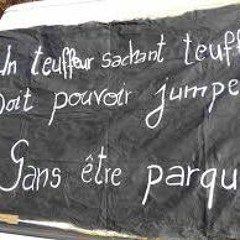 Un teuffeur sachant teuff
Doit pouvoir jumpe
Sans être parqu